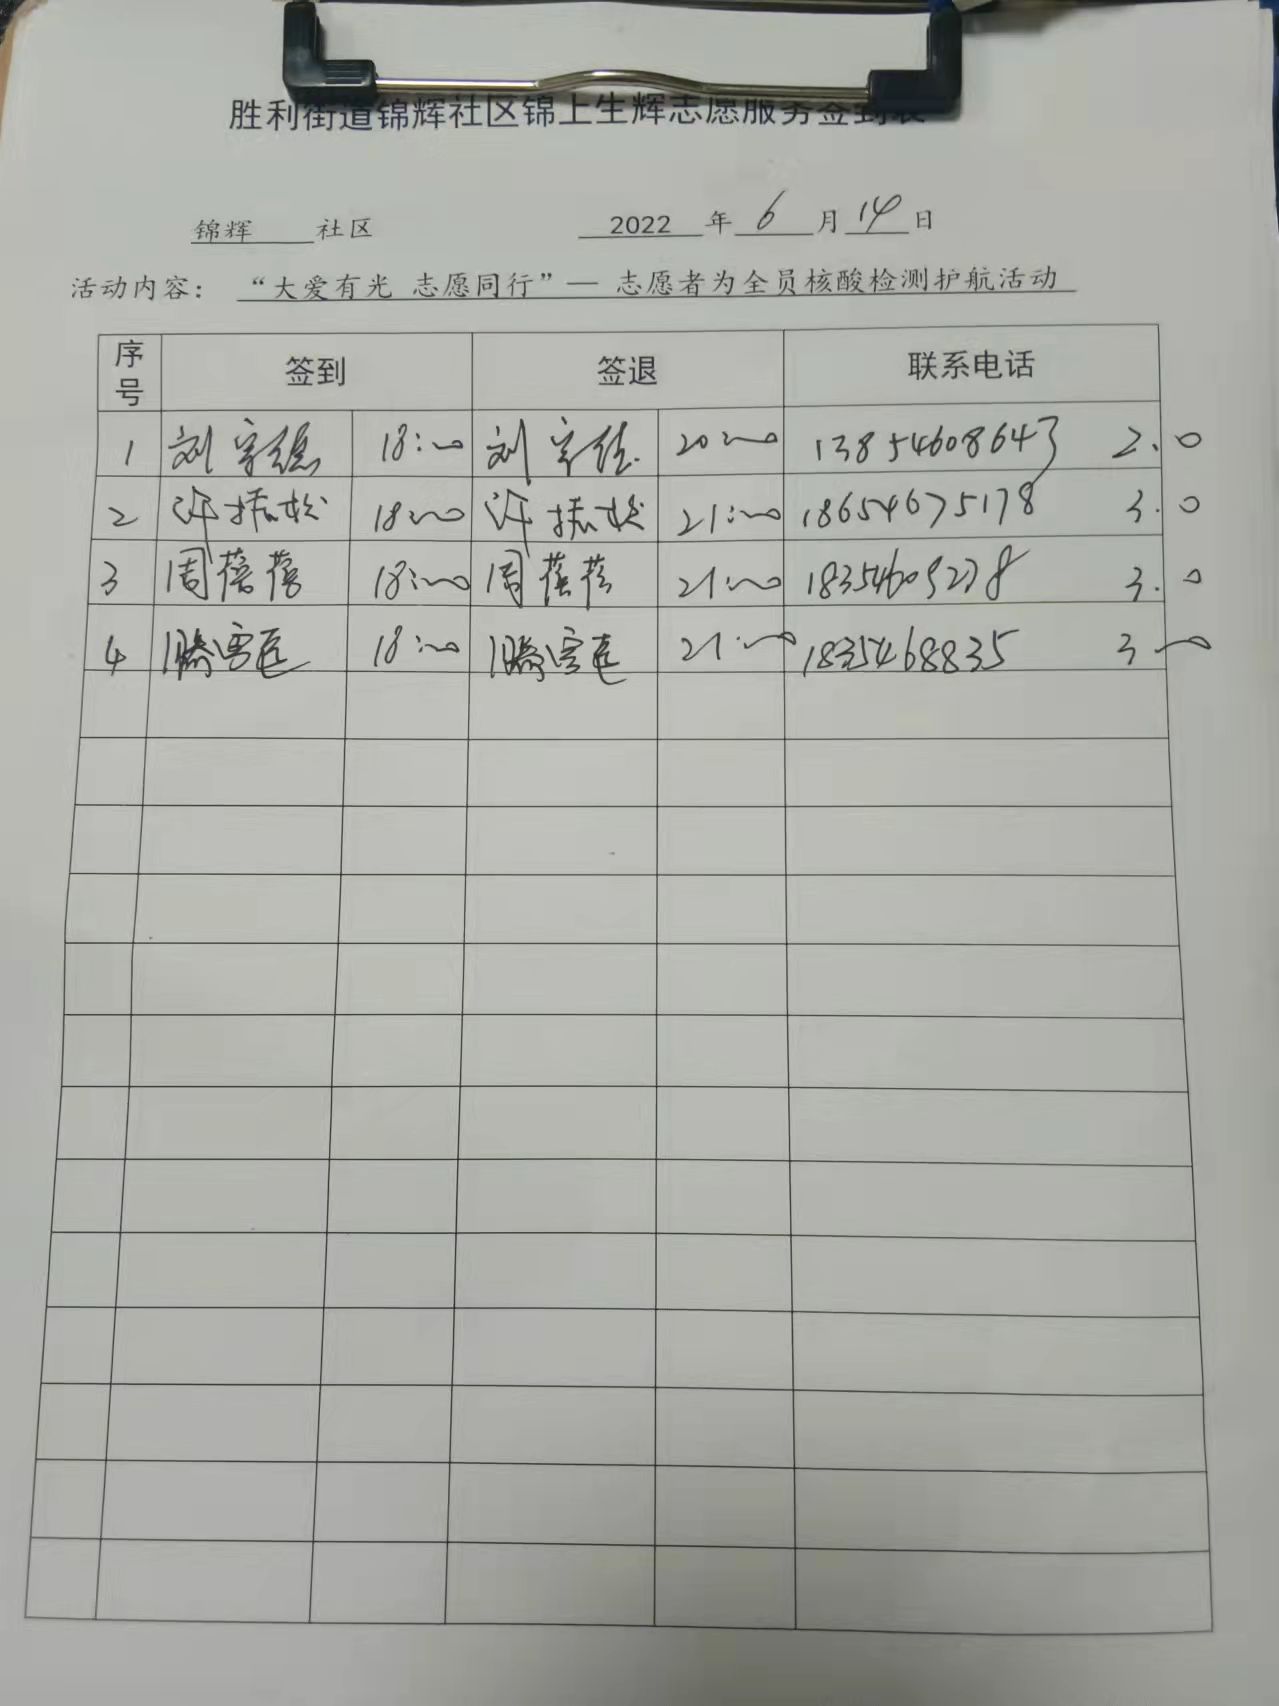 胜利街道锦辉社区锦上生辉志愿服务签到表
锦辉 社区 2022 年 6 月 14 日
活动内容: “大爱有光 志愿同行”— 志愿者为全员核酸检测护航活动
序号 签到 签退 联系电话
1 刘 18:00 刘 20:00 13854608643 2.0
2 许 18:00 许 21:00 18654675178 3.0
3 周蓓蓓 18:00 周蓓蓓 21:00 18354609278 3.0
4 18:00 21:00 1835468835 3.0